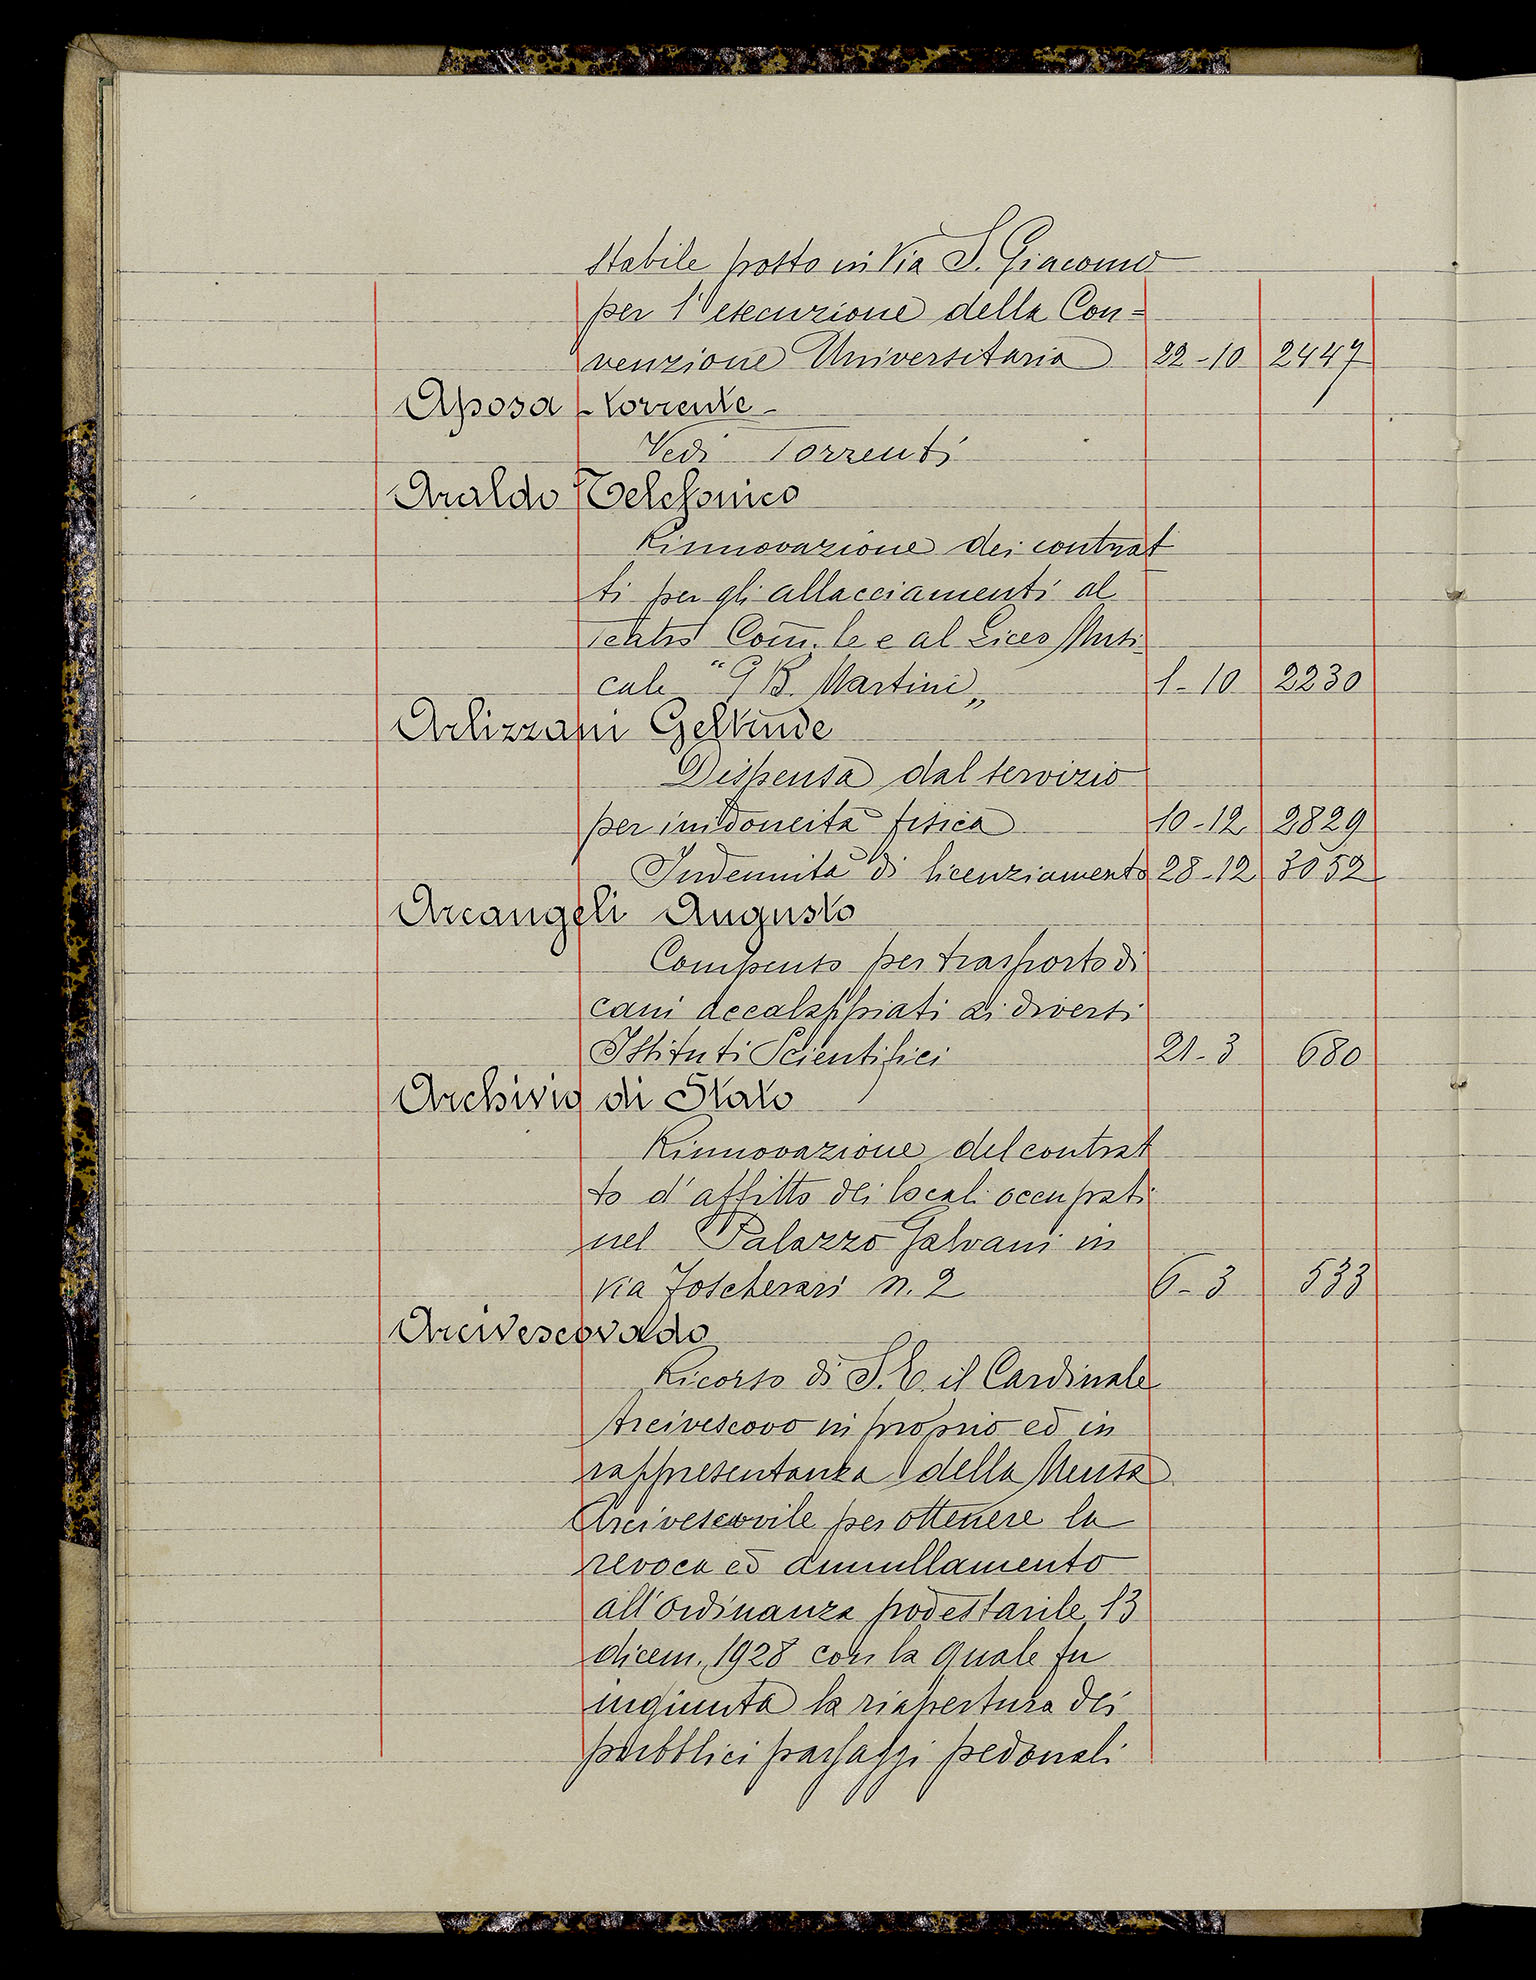 stabile posto in Via S. Giacomo
per l'esecuzione della Con=
venzione Universitaria 22-10 2447
Aposa - torrente -
Vedi Torrenti
Araldo Telefonico
Rinnovazione dei contrat
ti per gli allacciamenti al
Teatro Com.le e al Liceo Musi=
cale "G B. Martini„ 1-10 2230
Arlizzani Geltrude
Dispensa dal servizio
per inidoneità fisica 10-12 2829
Indennità di licenziamento 28-12 3052
Arcangeli Augusto
Compenso per trasporto di
cani accalappiati ai diversi
Istituti Scientifici 21-3 680
Archivio di Stato
Rinnovazione del contrat
to d'affitto dei locali occupati
nel Palazzo Galvani in
via Foscherari n. 2 6-3 533
Arcivescovado
Ricorso di S. E. il Cardinale
Arcivescovo in proprio ed in
rappresentanza della Mensa
Arcivescovile per ottenere la
revoca ed annullamento
all'ordinanza podestarile 13
dicem. 1928 con la quale fu
ingiunta la riapertura dei
pubblici passaggi pedonali